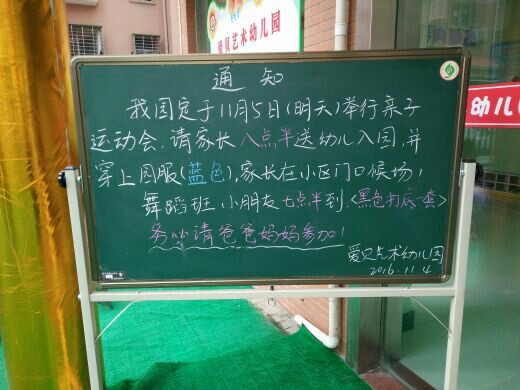 爱贝艺术幼儿园
幼儿
通知
我园定于11月5日(明天)举行亲子
运动会,请家长八点半送幼儿入园,并
穿上园服(蓝色),家长在小区门口候场,
舞蹈班小朋友七点半到<黑色打底套>
务必请爸爸妈妈参加!
爱贝艺术幼儿园
2016.11.4